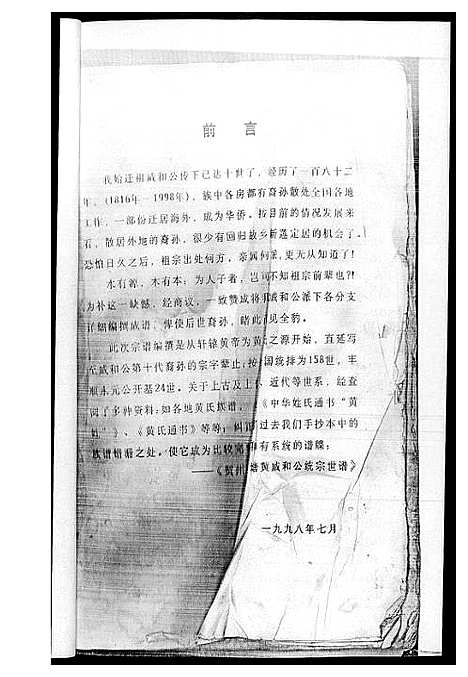 前 言
我始迁祖咸和公传下已达十世了，经历了一百八十二
年，(1816年—1998年)，族中各房都有裔孙散处全国各地
工作，一部份迁居海外，成为华侨。按目前的情况发展来
看，散居外地的裔孙，很少有回归故乡 定居的机会了。
恐怕日久之后，祖宗出处何方，亲属何 ，更无从知道了！
水有源，木有本：为人子者，岂可不知祖宗前辈也?!
为补这一缺憾，经商议，一致赞成将 咸和公派下各分支
详细编撰成谱，俾使后世裔孙，睹此 见全豹。
此次宗谱编撰是从轩辕黄帝为黄 之源开始，直延写
至咸和公第十代裔孙的宗字辈止，按 国统排为158世，丰
顺 元公开基24世。关于上古及上 、近代等世系，经查
阅了多种资料：如各地黄氏族谱， 《中华姓氏通书“黄
姓”》、《黄氏通书》等等，纠 过去我们手抄本中的
族谱错漏之处，使它成为比较完 有系统的谱牒；
——《 黄咸和公统宗世谱》
一九九八年七月